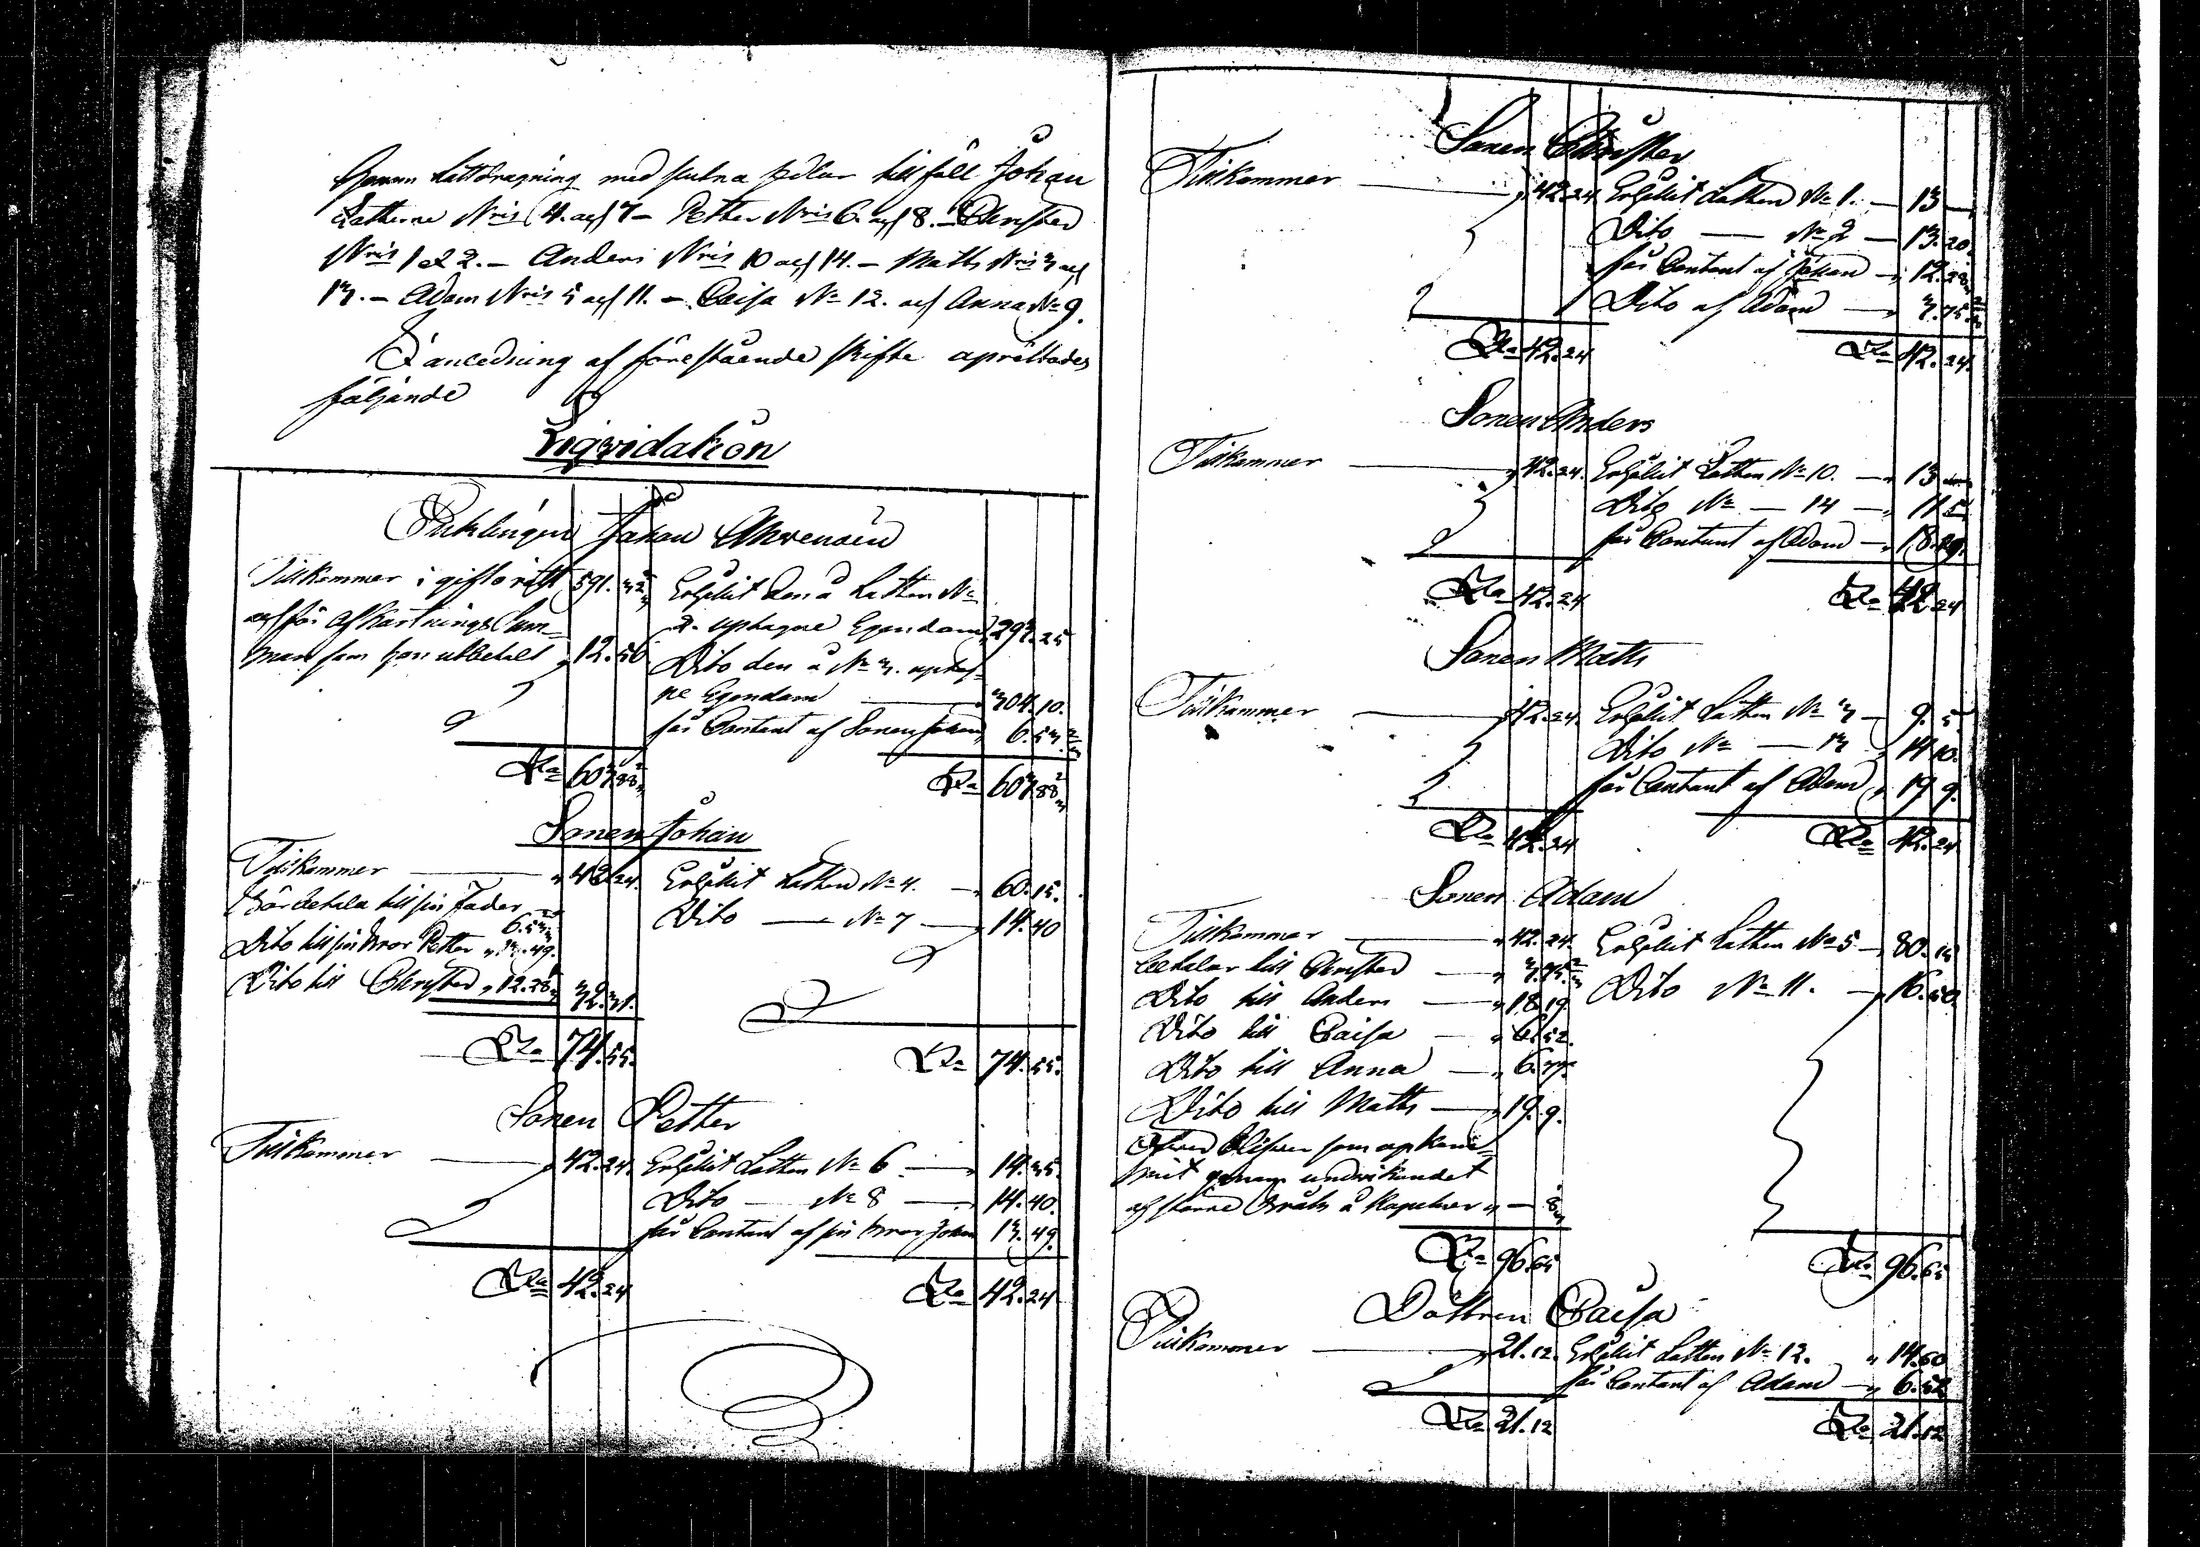 Genom Lottdragning med slutna sedlar tillföll Johan
Lotterne Nris 4. och 7 – Petter Nris 6. och 8. – Christer
Nris 1 et 2. – Anders Nris 10 och 14. – Matts Nris 3 och
13. – Adam Nris 5 och 11. – Caisa No 12. och Anna No 9.
I anledning af förestående skifte uprättades
följande
Liqvidation
Johan
Tillkommer i giftorätt 591. 32 Erhållit den å Lotten No
och för Afkortnings Sum-
2. uptagne Egendom 297. 25
man som han utbetalt 12. 56
Dito den å No 3. uptag-
ne Egendom 304. 10.
får Contant af Sonen Johan 6. 53 2/3
Rd 603. 88 Rd 603. 88
Sonen Johan
Tillkommer 42. 24. Erhållit Lotten No 4. 60. 15.
Bör betala till sin Fader 6. 53
Dito No 7 14. 40
Dito till sin bror Petter 13. 49.
Dito till Christer 12. 28 32. 31.
Rd 74. 55. Rd 74. 55.
Sonen Petter
Tillkommer 42. 24. Erhållit Lotten No 6 14. 35.
Dito No 8 14. 40.
får Contant af sin bror Johan 13. 49.
Rd 42. 24 Rd 42. 24
Sonen Christer
Tillkommer 42. 24. Erhållit Lotten No 1. 13 –
Dito No 2 13. 20
får Contant af Johan 12. 28
Dito af Adam 3. 75
Rd 42. 24 Rd 42. 24.
Sonen Anders
Tillkommer 42. 24. Erhållit Lotten No 10. 13 –
Dito No 14 11. 5
får Contant af Adam 18. 19.
Rd 42. 24 Rd 42. 24
Sonen Matts
Tillkommer 42. 24. Erhållit Lotten No 3 9. 5
Dito No 13 14. 10.
får Contant af Adam 19. 9.
Rd 42. 24 Rd 42. 24
Sonen Adam
Tillkommer 42. 24. Erhållit Lotten No 5 80. 15
betalar till Christer 3. 75 2/3
Dito No 11. 16. 50.
Dito till Anders 18. 19.
Dito till Caisa 6. 52.
Dito till Anna 6.
Dito till Matts 19. 9.
som upkom-
mit genom undvikandet
af större bråk å
Rd 96. 65 Rd 96. 65
Dottren Caisa
Tillkommer 21. 12. Erhållit Lotten No 12. 14. 60
får Contant af Adam 6. 52
Rd 21. 12 Rd 21. 12